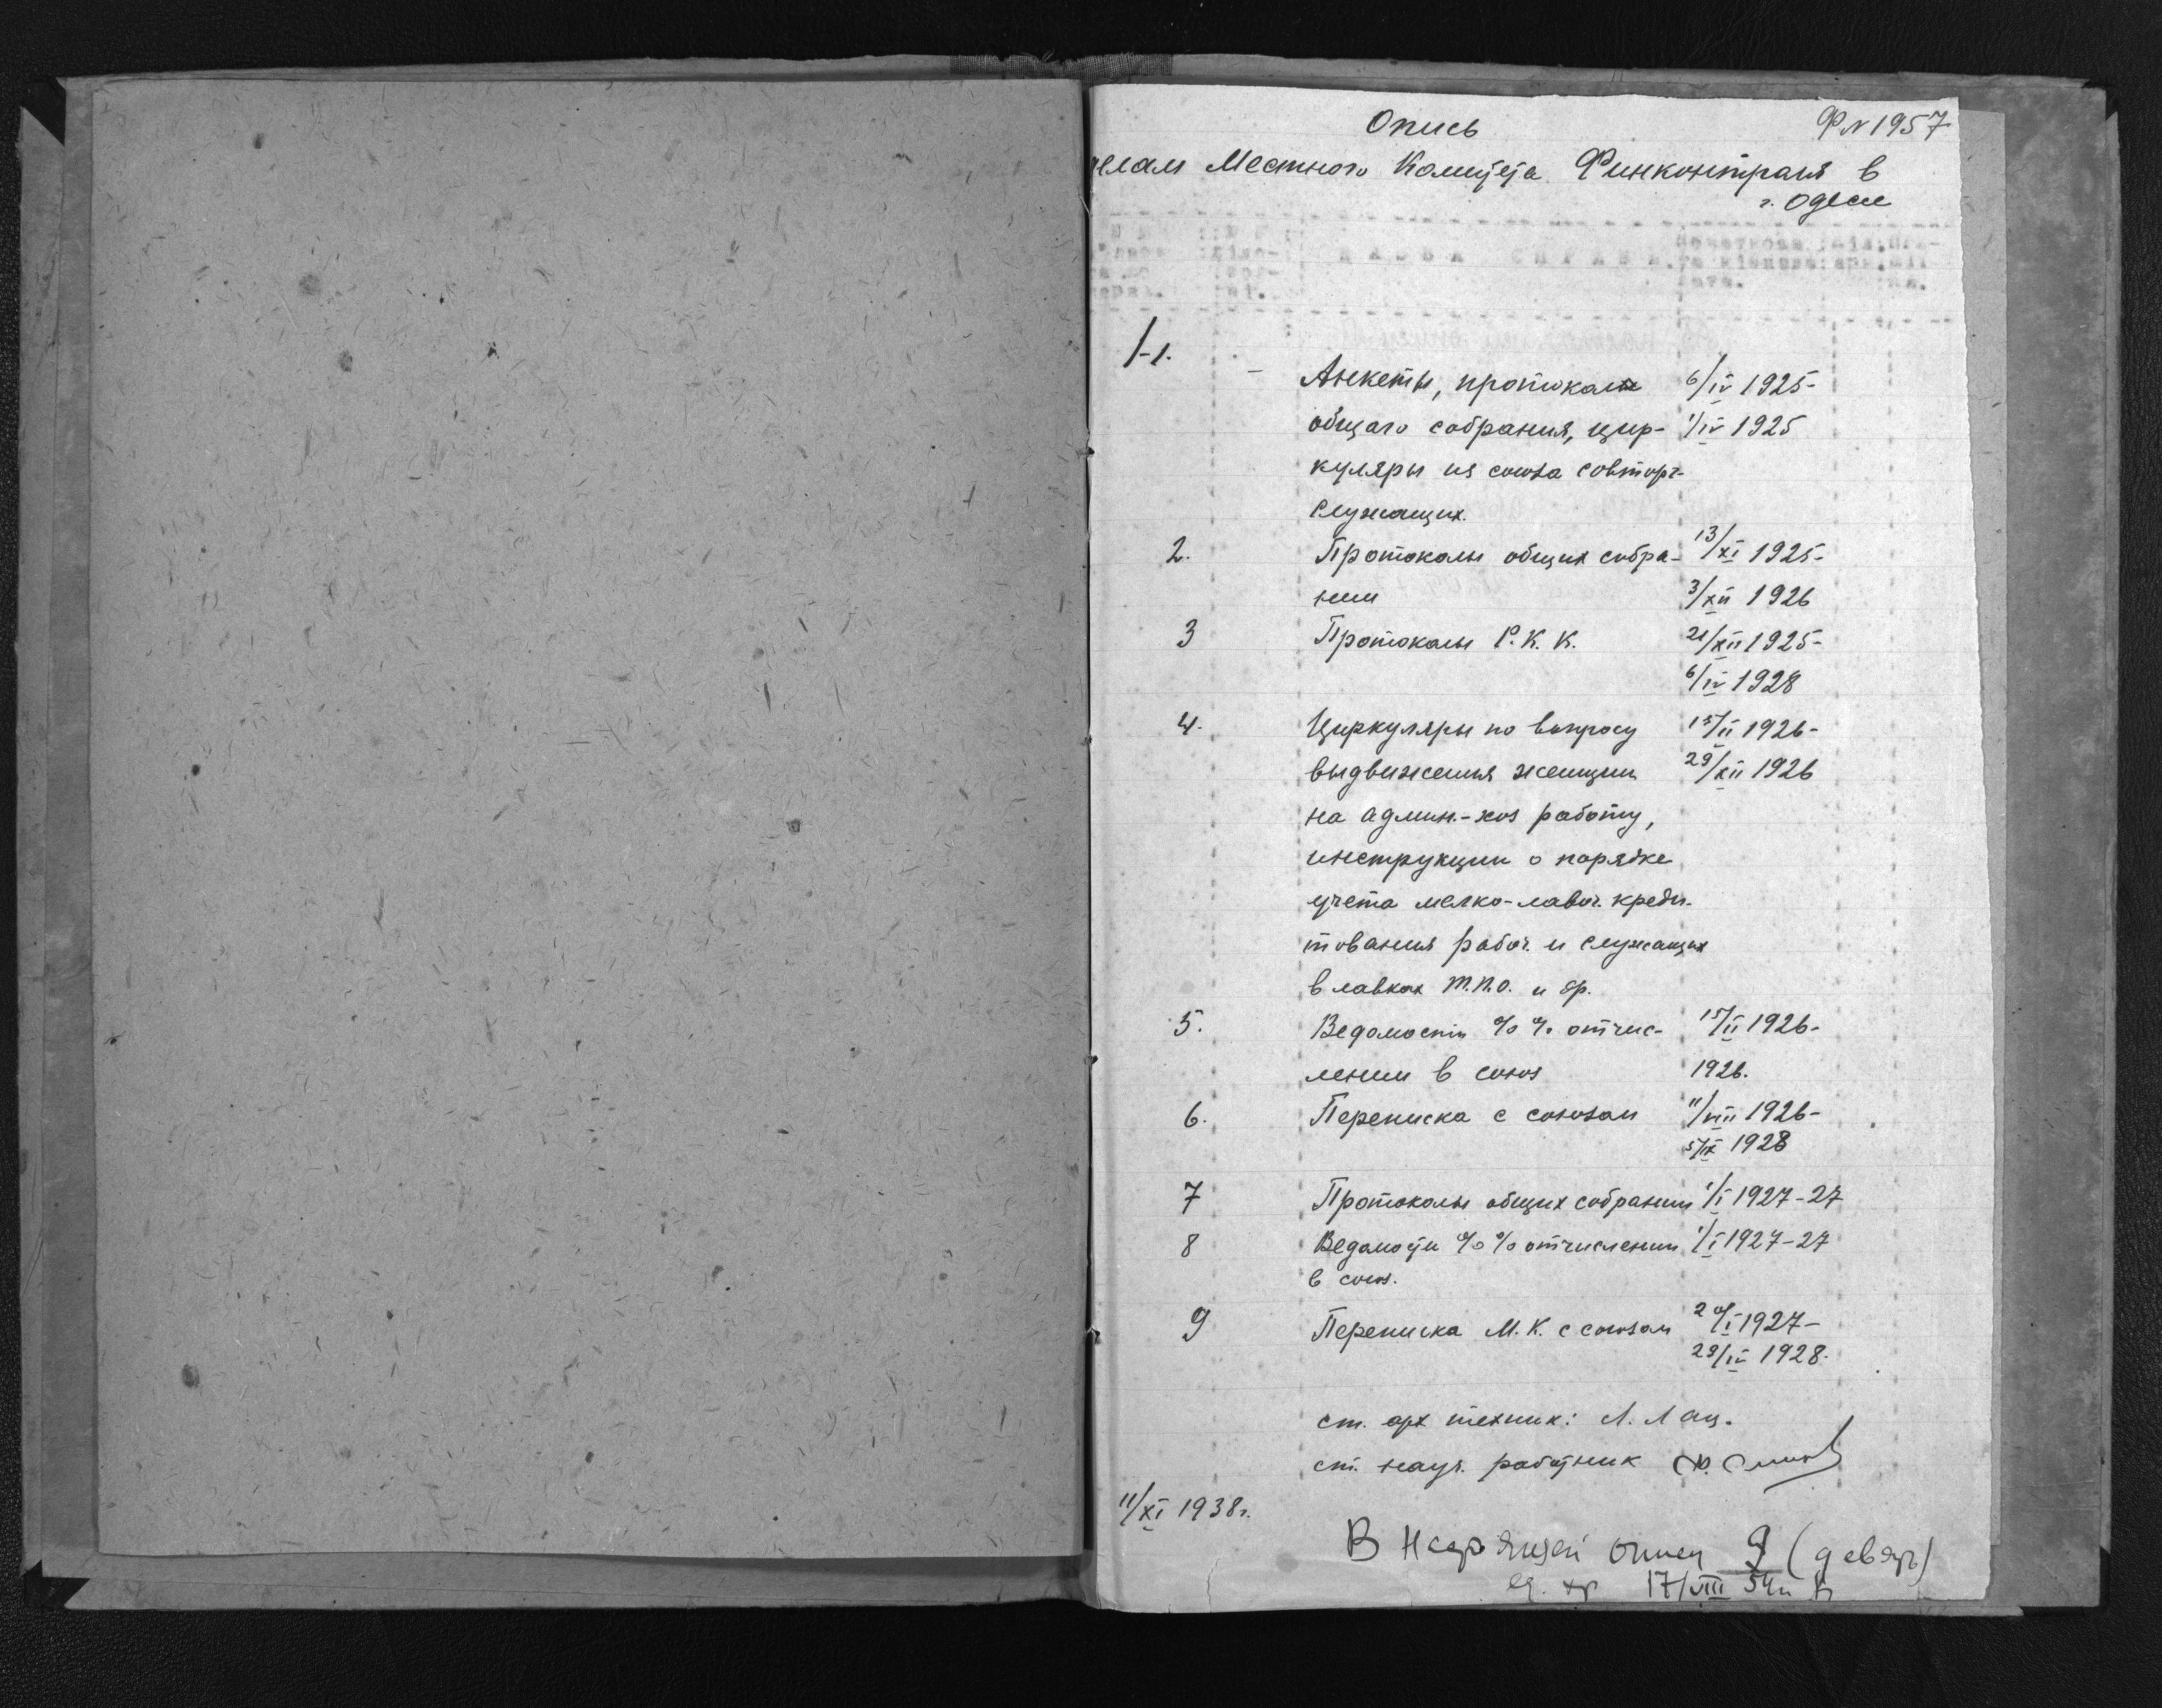 Опись
Ф № 1957
делам Местного Комитета Финконтроля в
г. Одессе
НАЗВА СПРАВИ
1-1.
Анкеты, протокол 6/IV 1925-
общаго собрания, цир- 1/IV 1925
куляры из союза совторг-
служащих.
2. Протоколы общих собра- 13/XI 1925-
нии 3/XII 1926
3 Протоколы Р.К.К. 21/XII 1925-
6/IV 1928
4. Циркуляры по вопросу 15/II 1926-
выдвижения женщин 29/XII 1926
на админ.-хоз работу,
инструкции о порядке
учета мелко-лавоч. креди-
тования рабоч. и служащих
в лавках Т.П.О. и др.
5. Ведомости %% отчис- 15/II 1926-
лении в союз 1926.
6. Переписка с союзом 11/VIII 1926-
5/IX 1928
7 Протоколы общих собрании 1/I 1927-27
8 Ведомости %% отчислении 1/I 1927-27
в союз.
9 Переписка М.К. с союзом 20/I 1927-
29/IV 1928.
ст. арх техник: Л. Лац.
ст. науч. работник
11/XI 1938г.
В настоящей описи 9 (девять)
ед. хр 17/VIII 54г